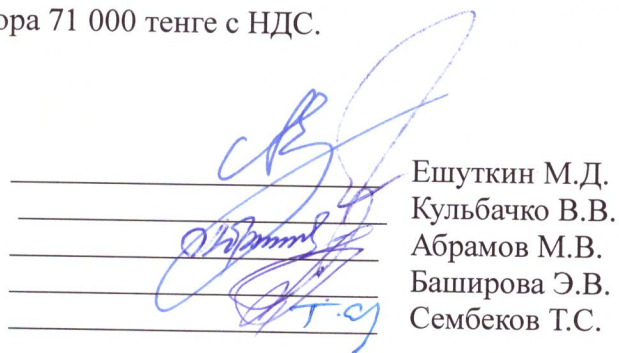 ора 71 000 тенге с НДС.
Ешуткин М.Д.
Кульбачко В.В.
Абрамов М.В.
Баширова Э.В.
Т.С. Сембеков Т.С.